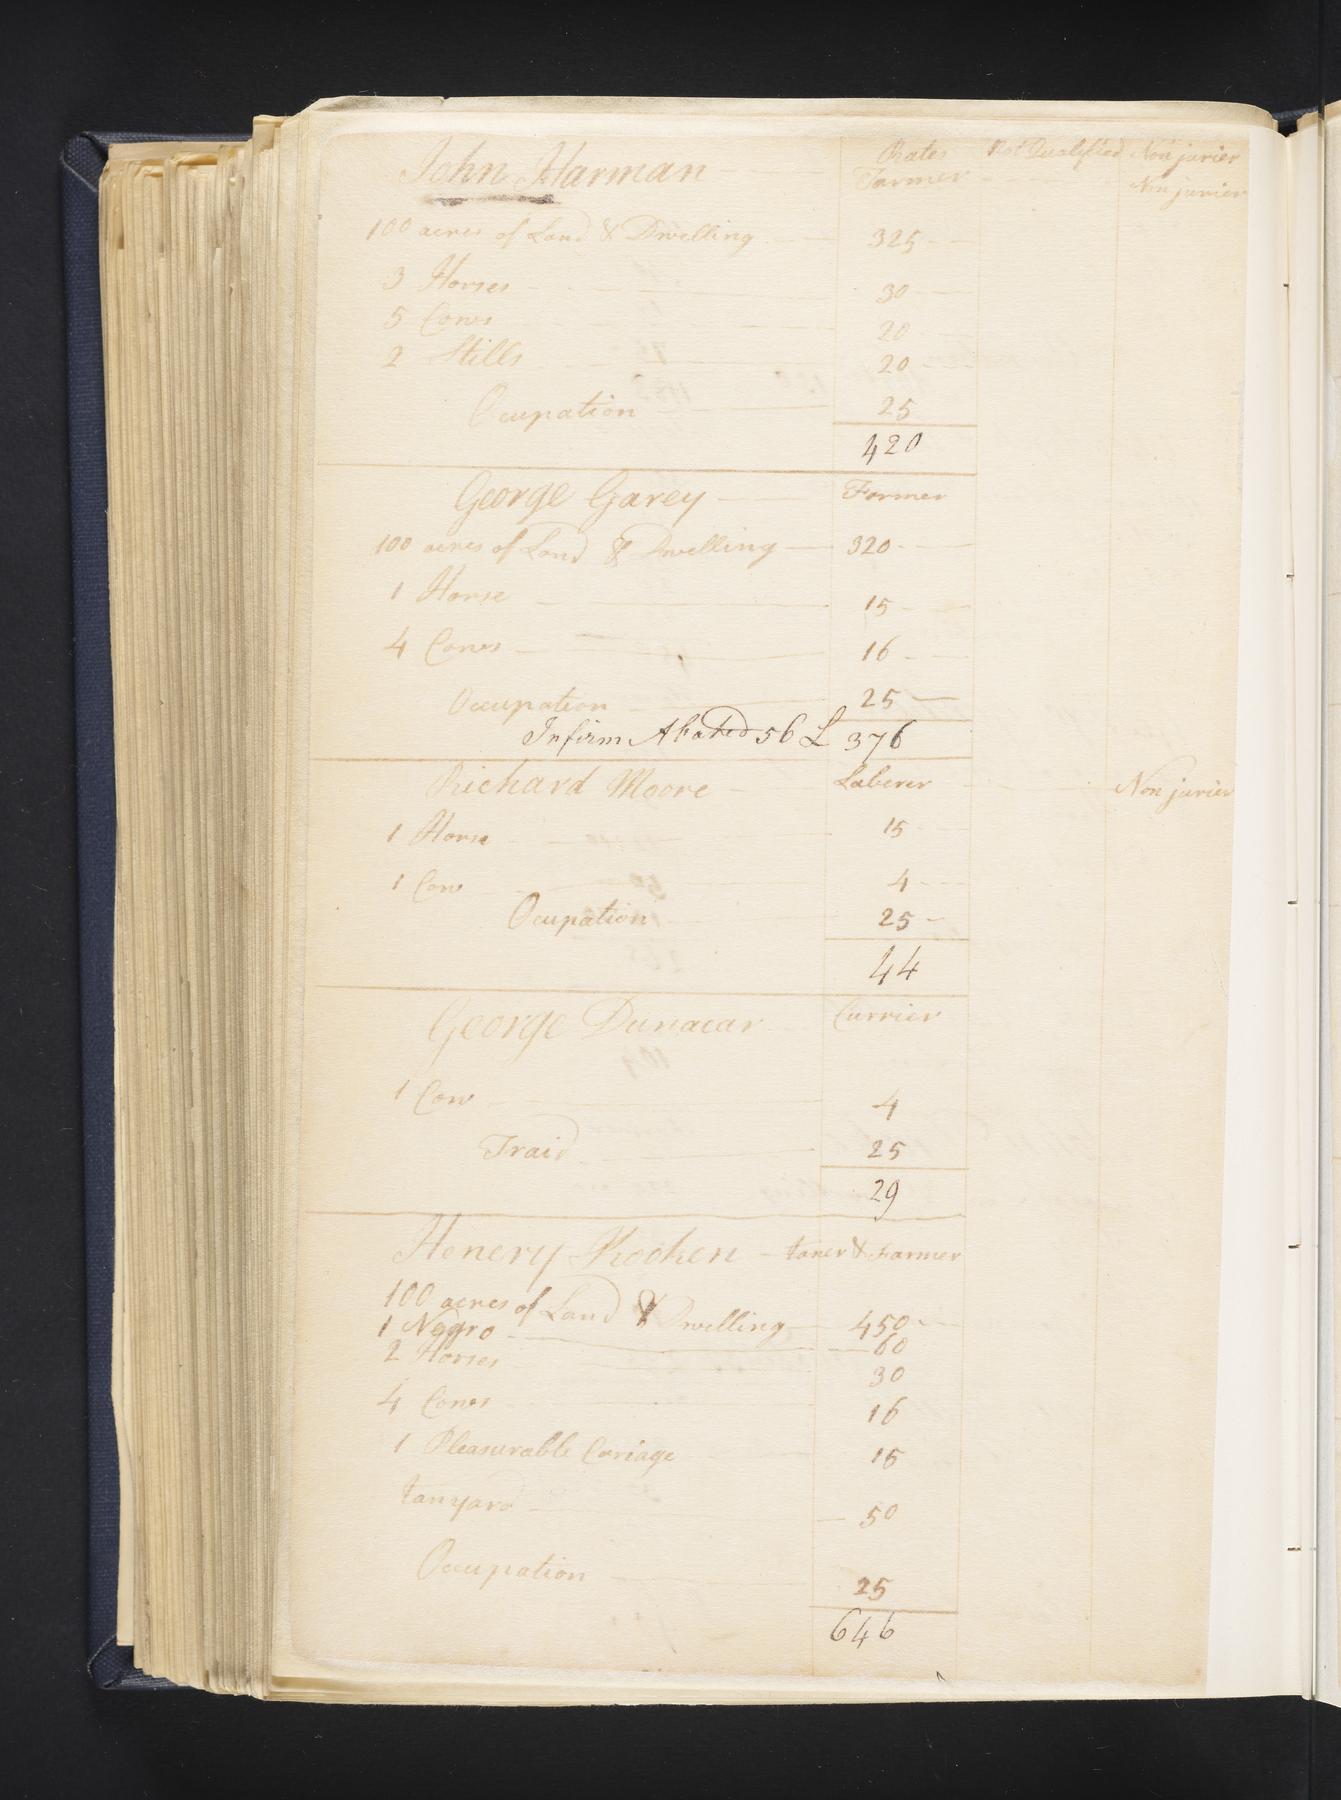 Rates Not Qualified Non jurier
John Harman Farmer Non jurier
100 acres of Land & Dwelling 325
3 Horses 30
5 Cows 20
2 Stills 20
Ocupation 25
420
George Garey Farmer
100 acres of Land & Dwelling 320
1 Horse 15
4 Cows 16
Occupation 25
Infirm Abated 56 L 376
Richard Moore Laberer Non jurier
1 Horse 15
1 Cow 4
Ocupation 25
44
George Dunacar Currier
1 Cow 4
Traid 25
29
Henery Kooken taner & Farmer
100 acres of Land & Dwelling 450
1 Neggro 60
2 Horses 30
4 Cows 16
1 Pleasurable Cariage 15
tanyard 50
Occupation 25
646